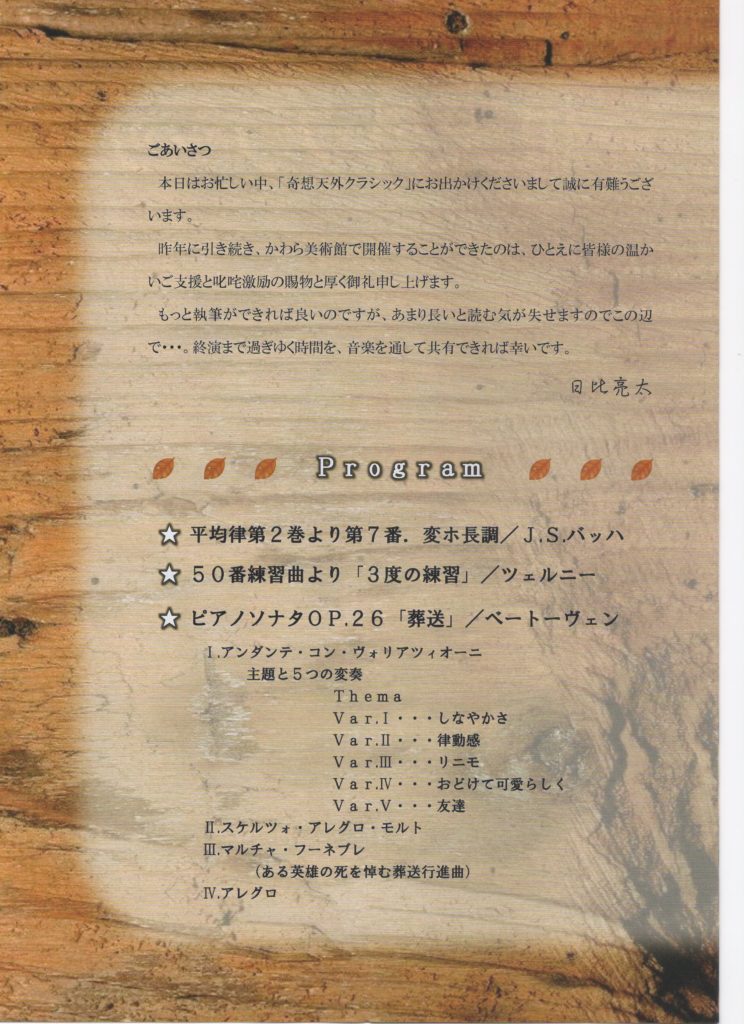 ごあいさつ
本日はお忙しい中、「奇想天外クラシック」にお出かけくださいまして誠に有難うござ
います。
昨年に引き続き、かわら美術館で開催することができたのは、ひとえに皆様の温か
いご支援と叱咤激励の賜物と厚く御礼申し上げます。
もっと執筆ができれば良いのですが、あまり長いと読む気が失せますのでこの辺
で・・・。終演まで過ぎゆく時間を、音楽を通して共有できれば幸いです。
日比亮太
Program
★ 平均律第２巻より第７番．変ホ長調／J.S.バッハ
★ ５０番練習曲より「３度の練習」／ツェルニー
★ ピアノソナタＯＰ.２６「葬送」／ベートーヴェン
Ⅰ.アンダンテ・コン・ヴォリアツィオーニ
主題と５つの変奏
Ｔｈｅｍａ
Ｖａｒ.Ⅰ・・・しなやかさ
Ｖａｒ.Ⅱ・・・律動感
Ｖａｒ.Ⅲ・・・リニモ
Ｖａｒ.Ⅳ・・・おどけて可愛らしく
Ｖａｒ.Ⅴ・・・友達
Ⅱ.スケルツォ・アレグロ・モルト
Ⅲ.マルチャ・フーネブレ
（ある英雄の死を悼む葬送行進曲）
Ⅳ.アレグロ